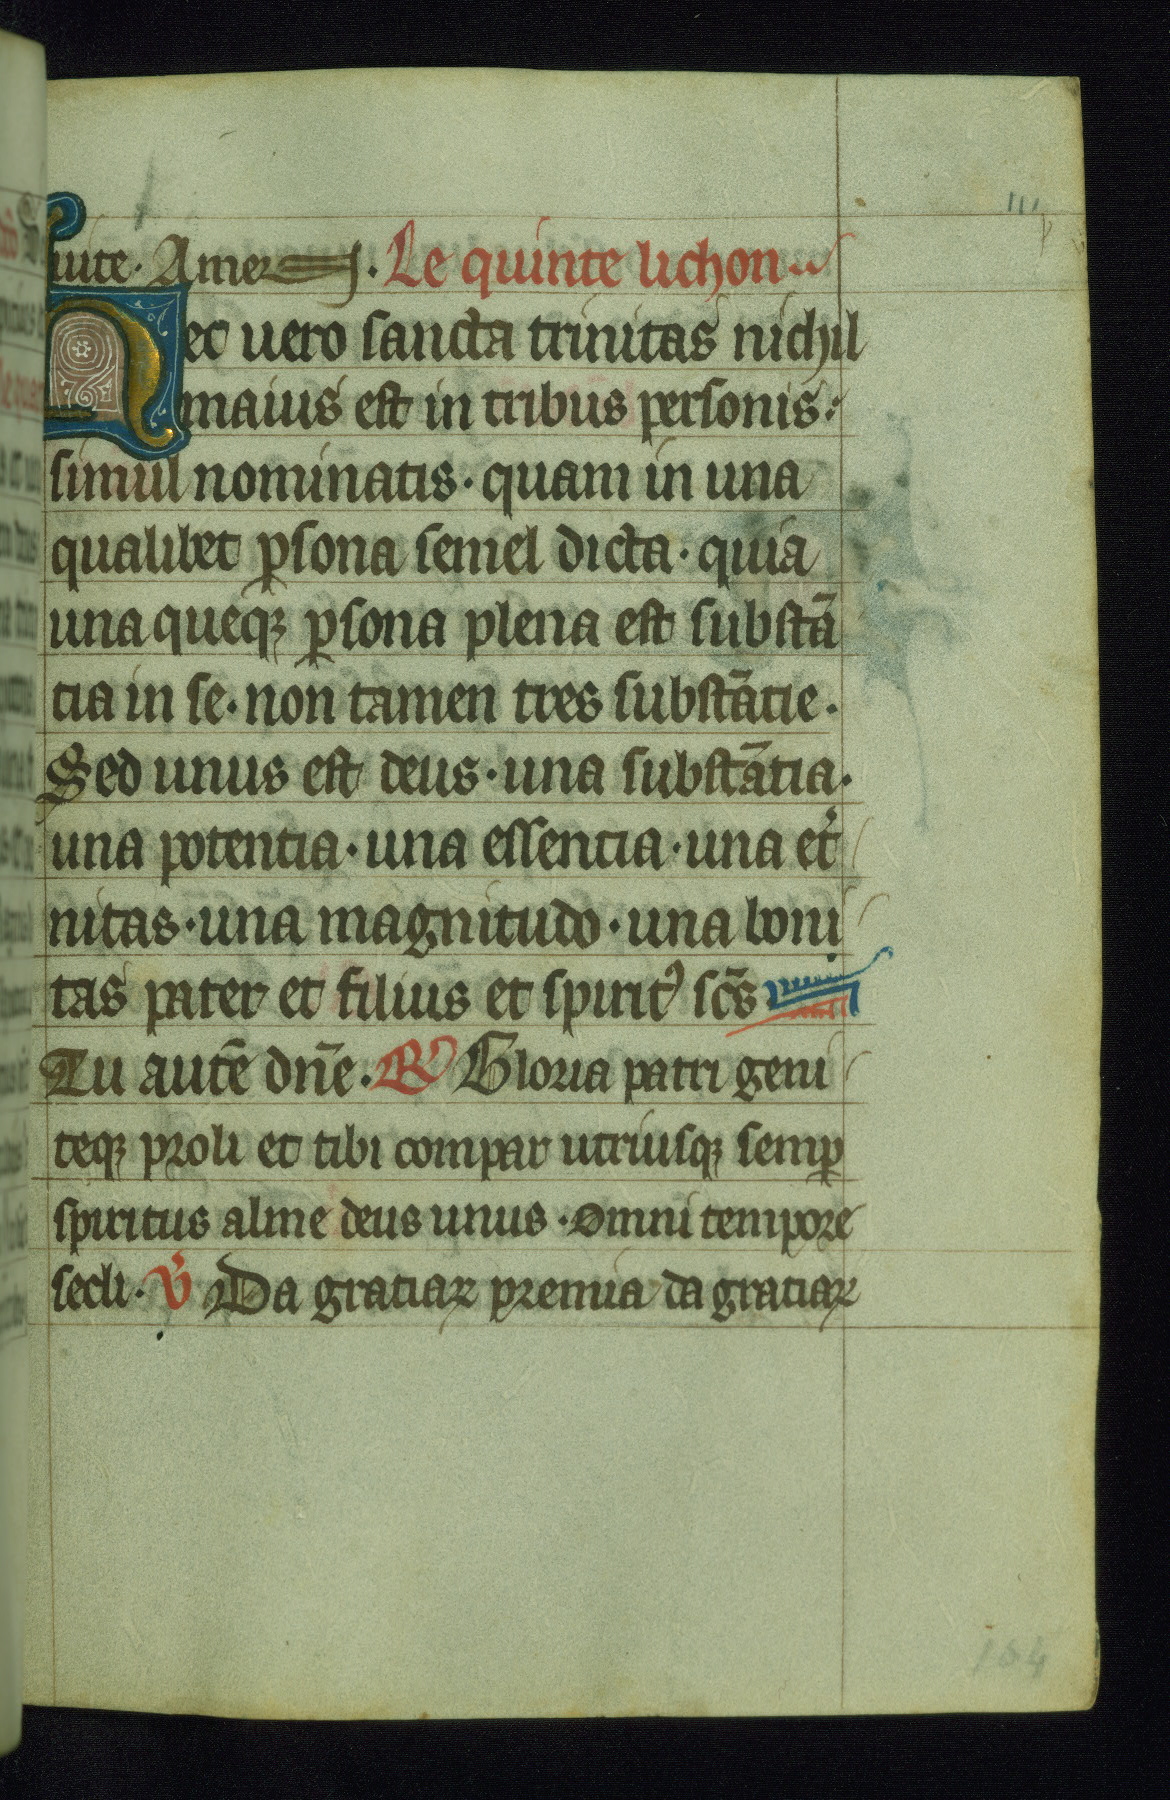 uite. Amen. Le quinte lichon
Hec uero sancta trinitas nichil
maius est in tribus personis:
simul nominatis. quam in una
qualibet ꝑsona semel dicta. quia
una queqꝫ ꝑsona plena est substā
tia in se. non tamen tres substātie.
Sed unus est deus. una substātia.
una potentia. una essentia. una et̾
nitas. una magnitudo. una boni
tas pater et filius et spiritꝰ sc̄s
Tu autē dn̄e. R Gloria patri geni
teqꝫ proli et tibi compar utriusqꝫ semꝑ
spiritus alme deus unus. omni tempore
secli. V̾ Da gaudiorum premia da gratiarum
164